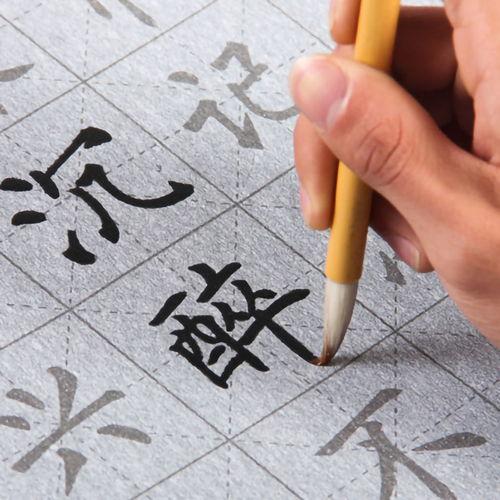 记
沉醉不
兴